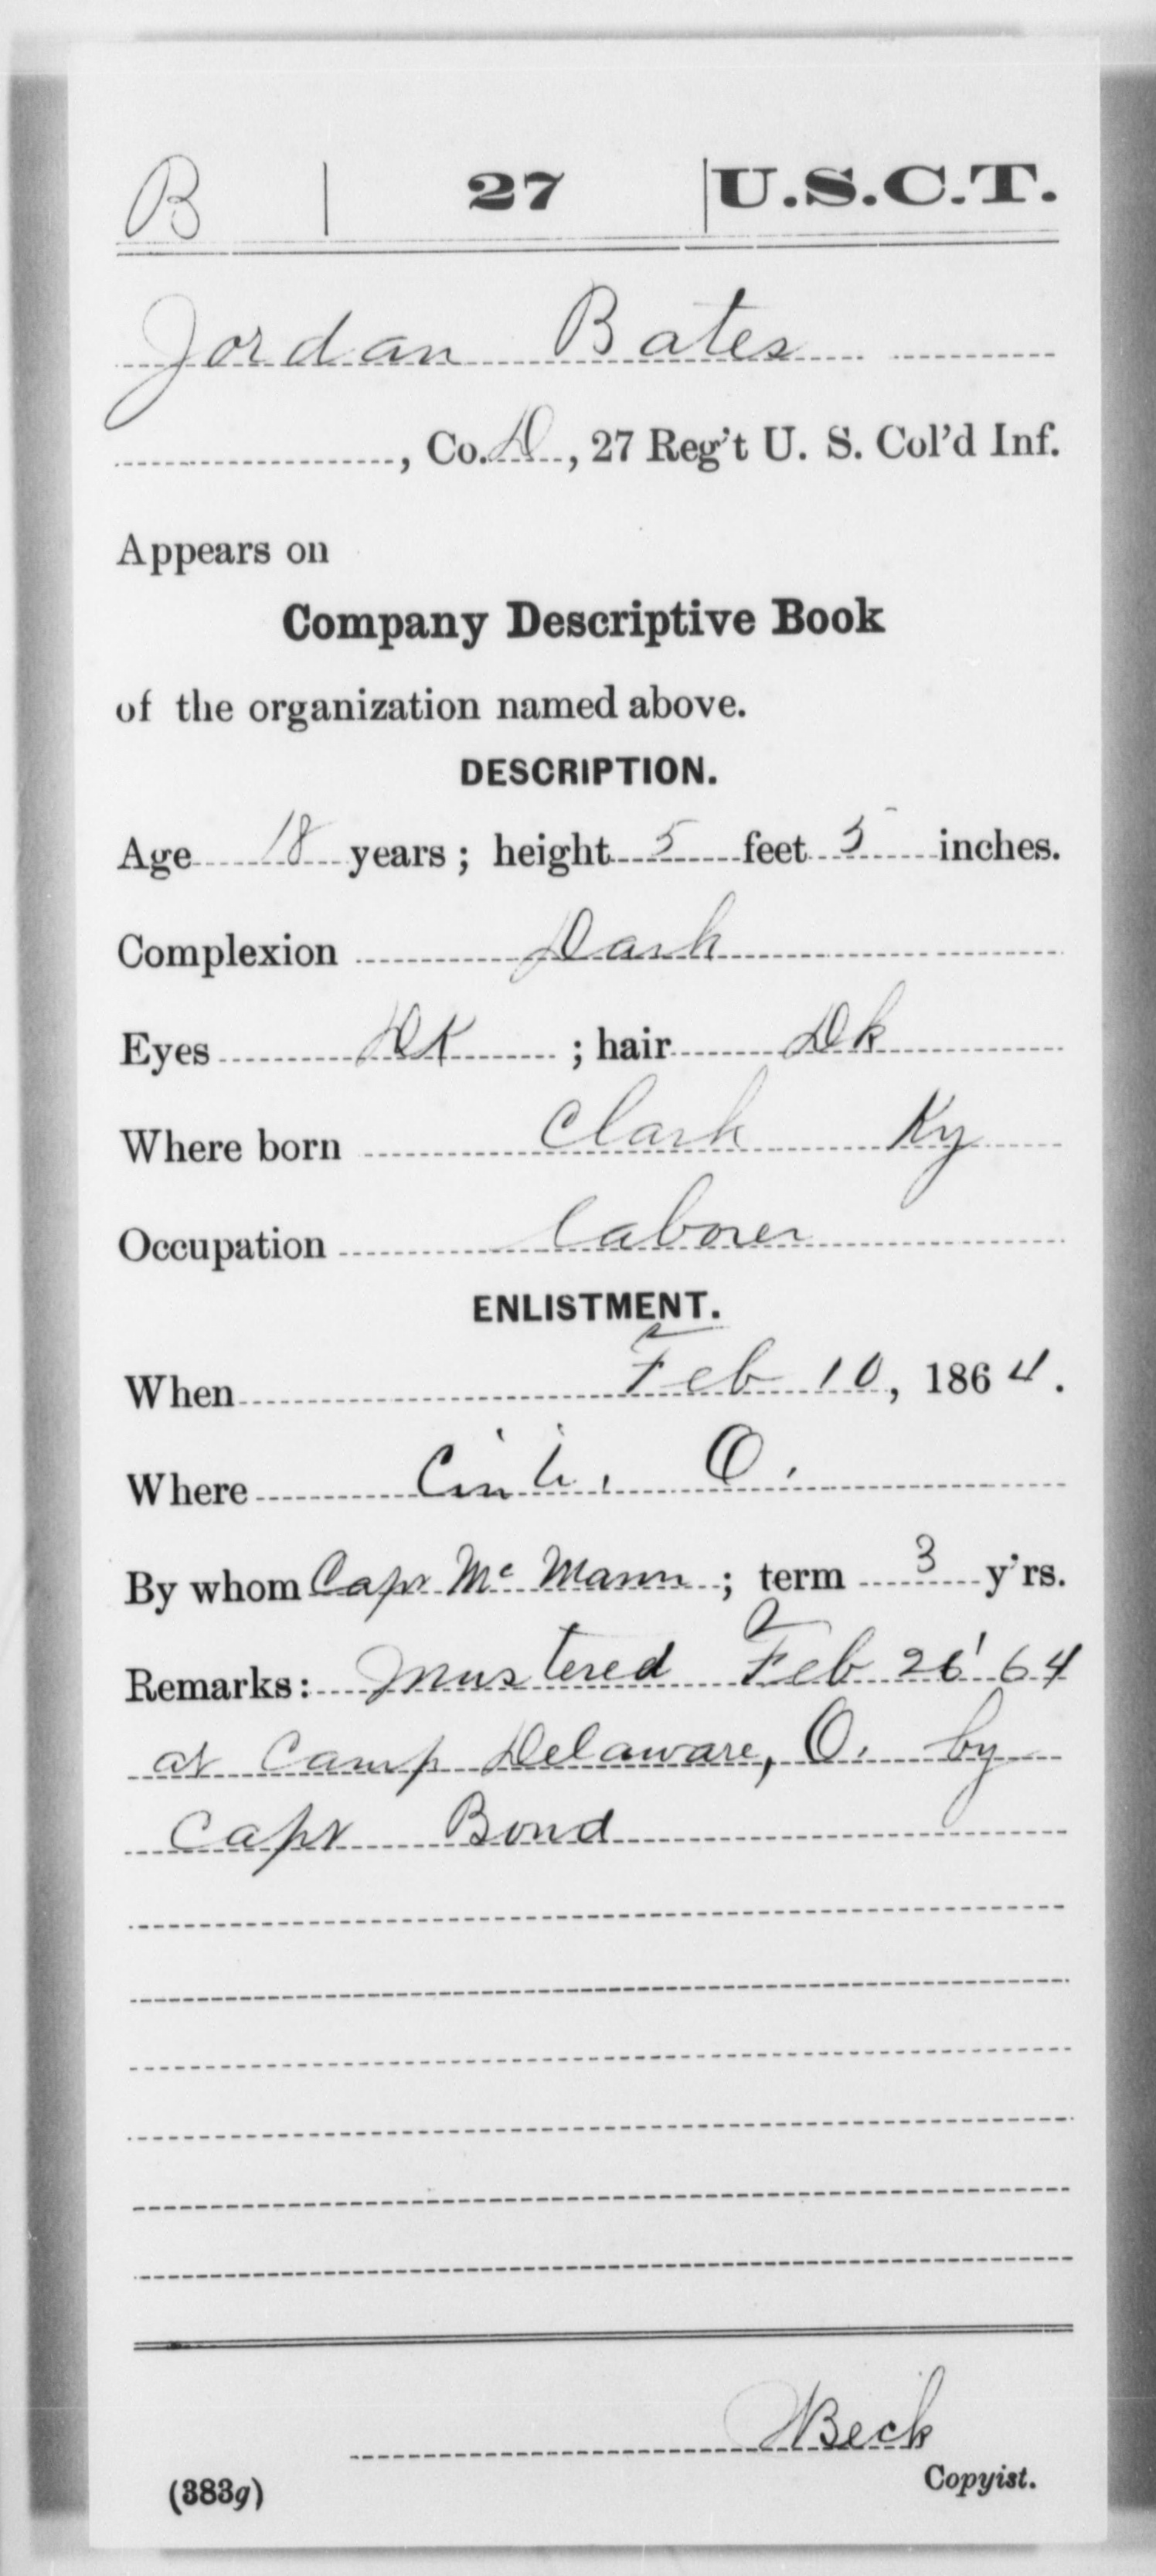 B | 27 | U.S.C.T.
Jordan Bates
, Co. D, 27 Reg't U. S. Col'd Inf.
Appears on
Company Descriptive Book
of the organization named above.
DESCRIPTION.
Age 18 years; height 5 feet 5 inches.
Complexion Dark
Eyes Dk ; hair Dk
Where born Clark Ky
Occupation Laborer
ENLISTMENT.
When Feb 10, 1864.
Where Cinti, O.
By whom Capt Mc Mann; term 3 y'rs.
Remarks: Mustered Feb 26' 64
at Camp Delaware, O. by
Capt Bond
Beck
(383g) Copyist.